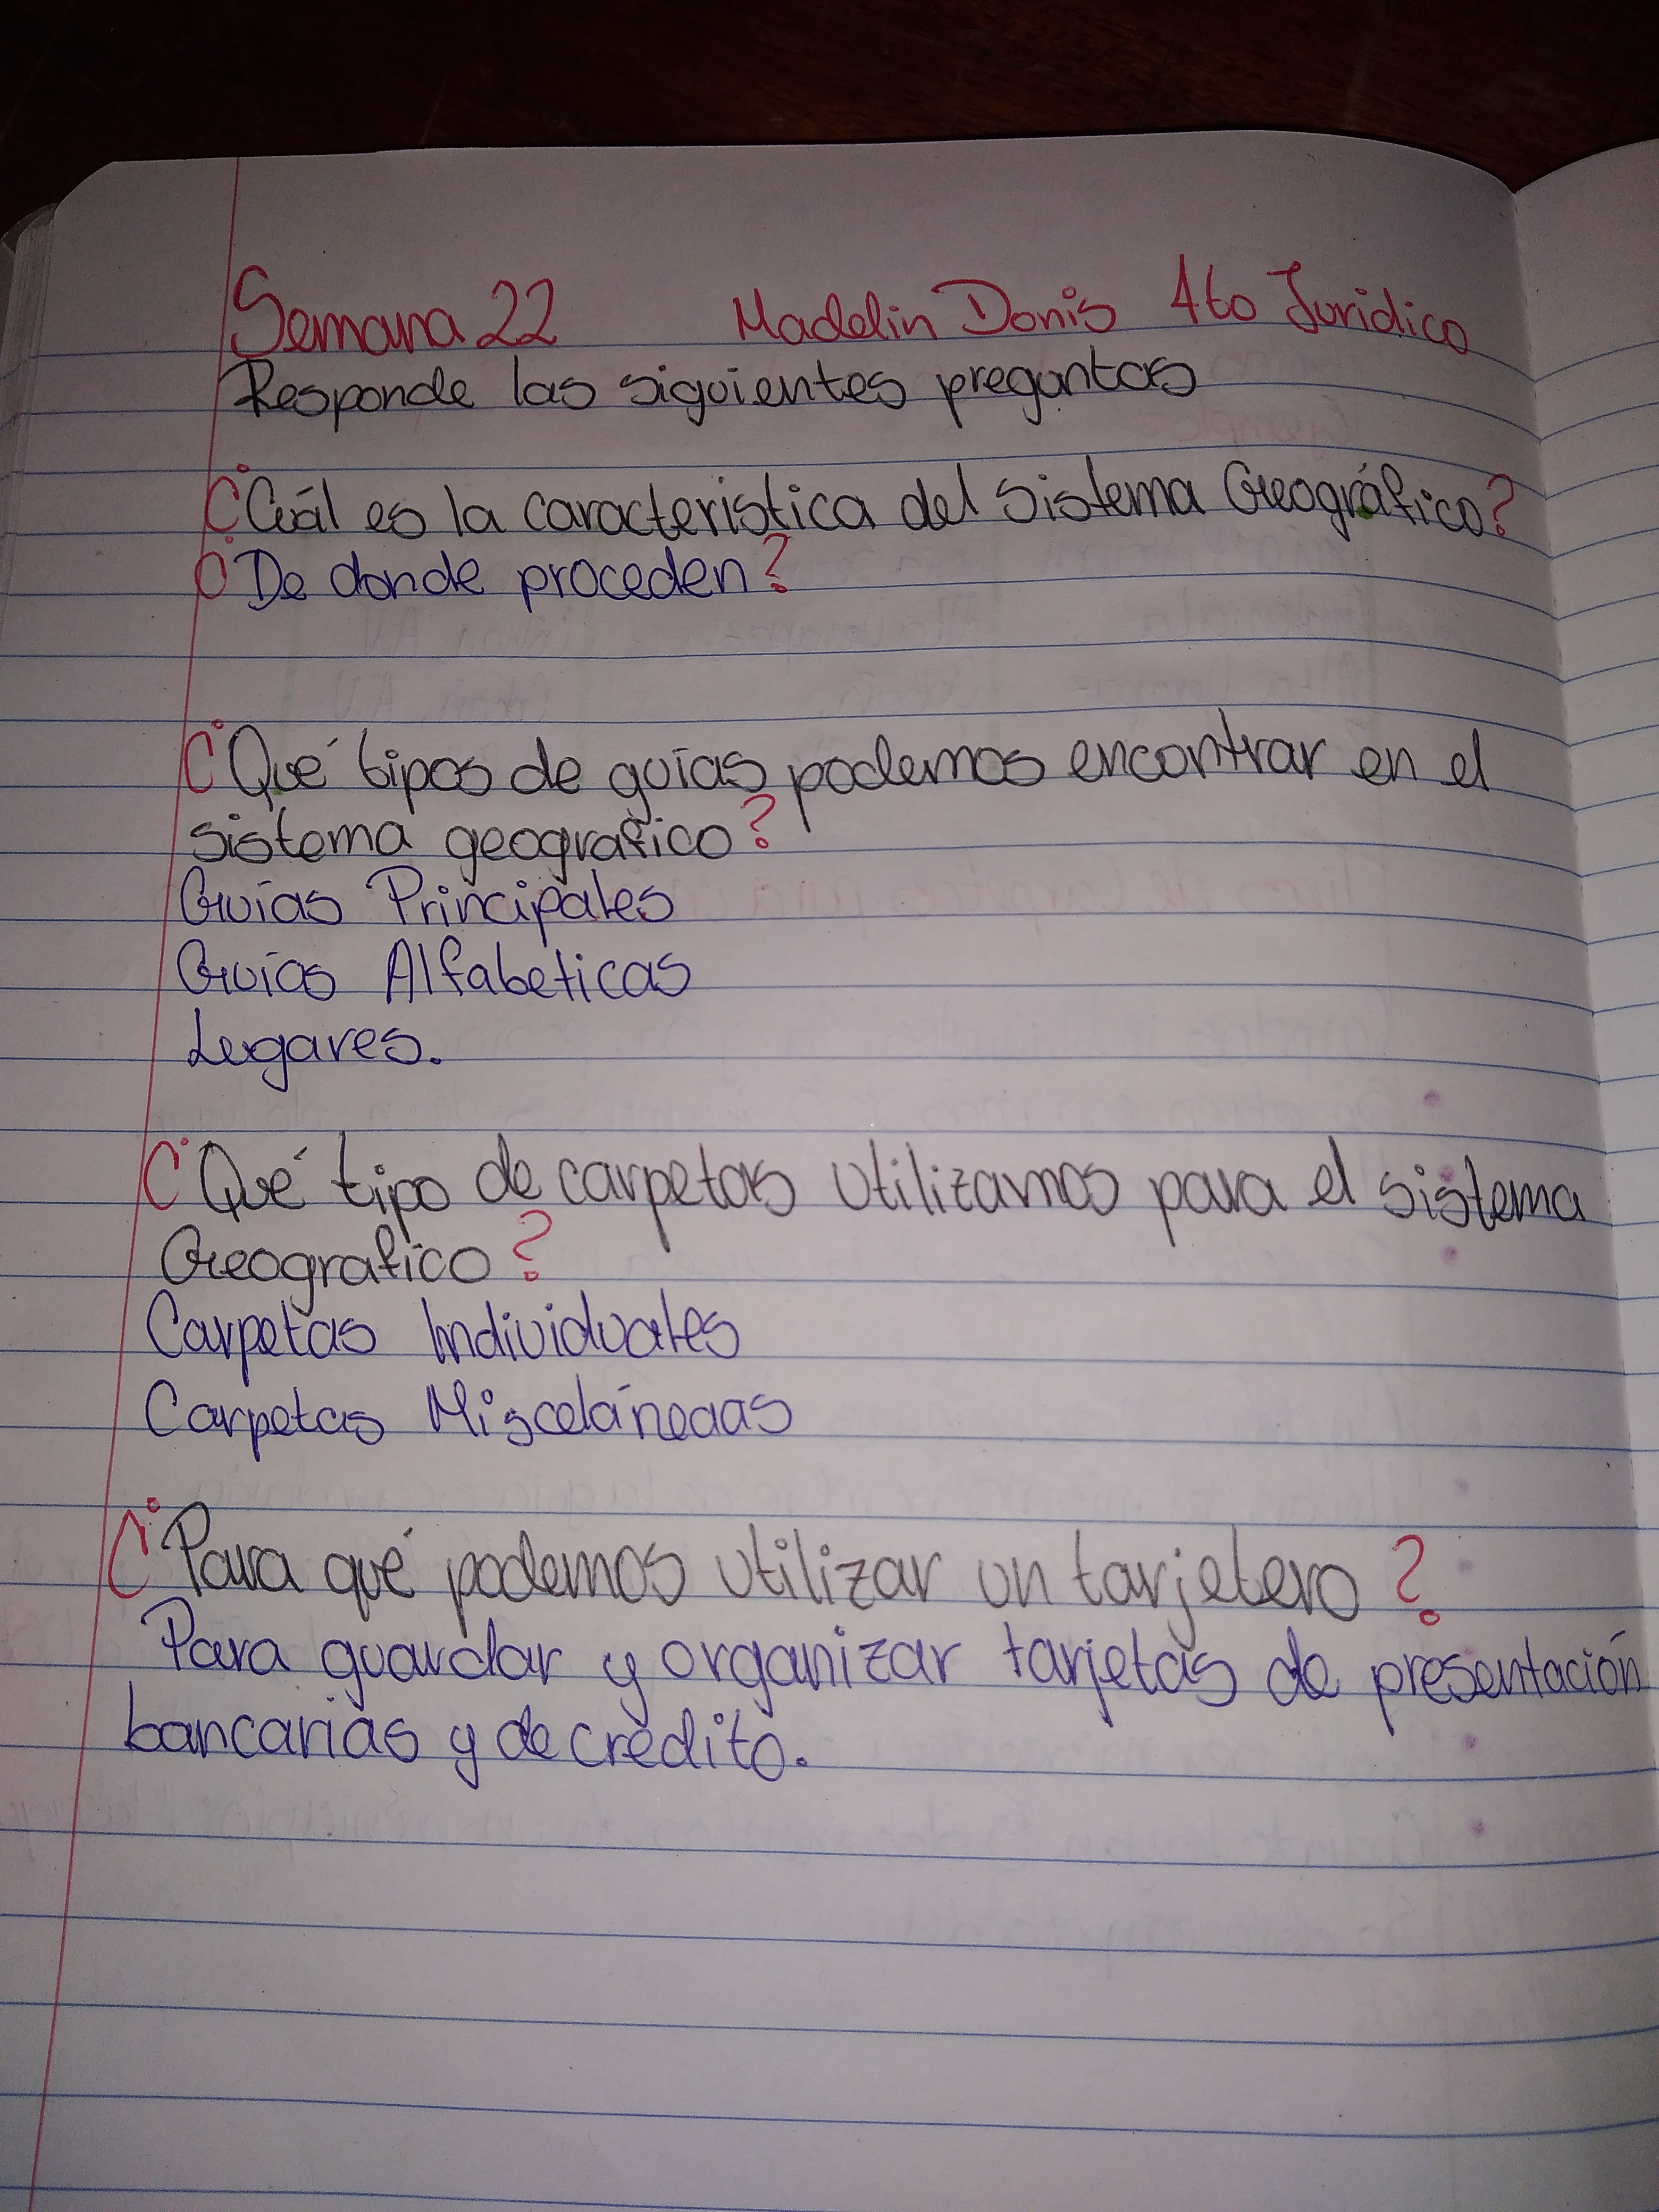 Semana 22 Madelin Donis 4to Juridico
Responde las siguientes preguntas
¿Cuál es la caracteristica del sistema Geográfico?
¿De donde proceden?
¿Qué tipos de guías podemos encontrar en el
sistema geografico?
Guías Principales
Guías Alfabeticas
Lugares.
¿Qué tipo de carpetas utilizamos para el sistema
Geografico?
Carpetas Individuales
Carpetas Misceláneaas
¿Para qué podemos utilizar un tarjetero?
Para guardar y organizar tarjetas de presentación
bancarias y de crédito.